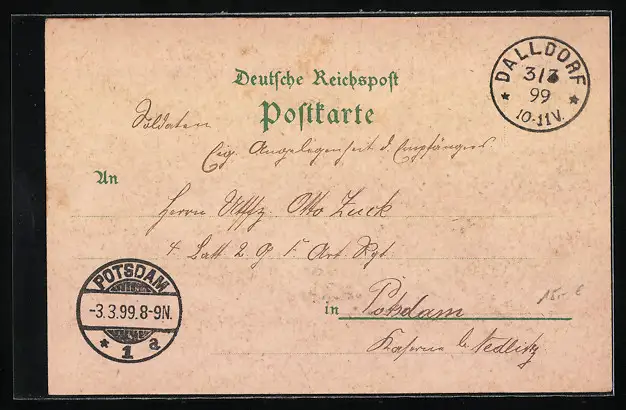 Deutsche Reichspost
Postkarte
DALLDORF
3/3
99
10-11V.
Soldaten
Eig. Angelegenheit d. Empfängers.
An
Herrn Utffz. Otto Zuck
4. Batt. 2. G. F. Art. Rgt.
in Potsdam
Kaserne b. Nedlitz
POTSDAM
-3.3.99.8-9N.
* 1 a